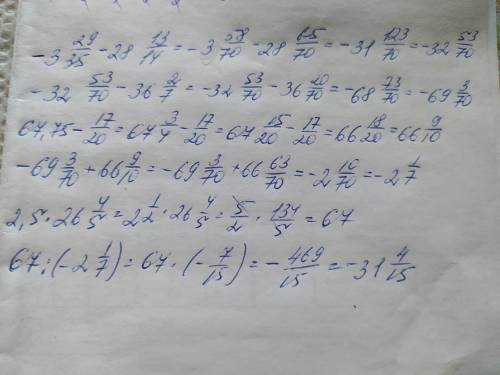 -3 29/35 - 28 13/14 = -3 58/70 - 28 65/70 = -31 123/70 = -32 53/70
-32 53/70 - 36 2/7 = -32 53/70 - 36 20/70 = -68 73/70 = -69 3/70
67,75 - 17/20 = 67 3/4 - 17/20 = 67 15/20 - 17/20 = 66 18/20 = 66 9/10
-69 3/70 + 66 9/10 = -69 3/70 + 66 63/70 = -2 10/70 = -2 1/7
2,5 · 26 4/5 = 2 1/2 · 26 4/5 = 5/2 · 134/5 = 67
67 : (-2 1/7) = 67 · (-7/15) = -469/15 = -31 4/15